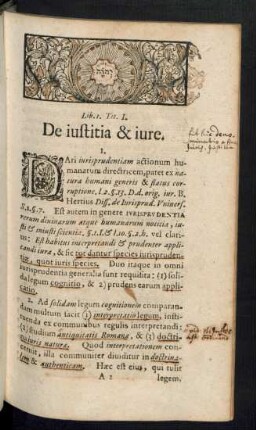 Lib. I. Tit. I.
De iustitia & iure.
I.
DAri iurisprudentiam actionum hu-
manarum directricem, patet ex na-
tura humani generis & status cor-
ruptione, l. 2. §. 13. D. d. orig. iur. B.
Hertius Diss. de Iurisprud. Vniuers.
§. 2. §. 7. Est autem in genere IVRISPRVDENTIA
rerum diuinarum atque humanarum notitia, iu-
sti & iniusti scientia, §. 1. I. & l. 10. §. 2. h. vel clari-
us: Est habitus interpretandi & prudenter appli-
candi iura, & sic tot dantur species iurispruden-
tiae, quot iuris species. Duo itaque in omni
iurisprudentia generali sunt requisita: (1) soli-
da legum cognitio, & 2) prudens earum
applicatio.
2. Ad solidam legum cognitionem comparan-
dam multum facit (1) interpretatio legum, insti-
tuenda ex communibus regulis interpretandi:
(2) studium antiquitatis Romanae, & (3) doctri-
na iuris naturae. Quod interpretationem con-
cernit, illa communiter diuiditur in doctrina-
lem & authenticam. Haec est eius, qui tulit
A 2
legem.